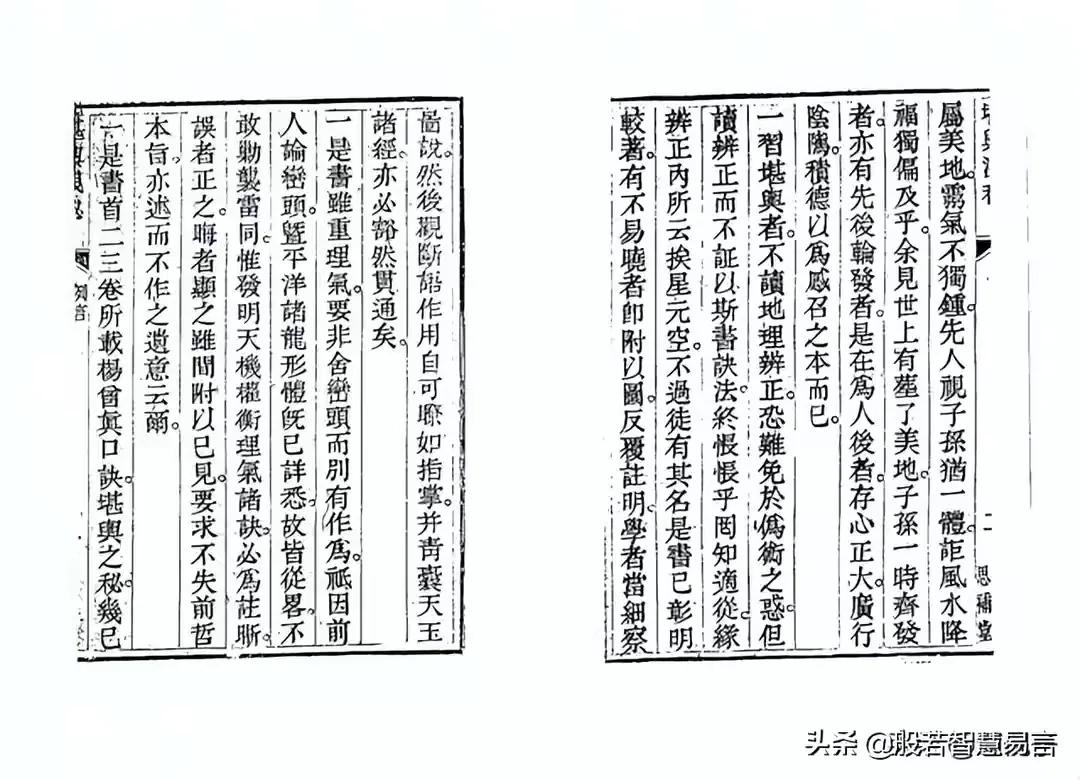 屬美地。霱氣不獨鍾。先人視子孫猶一體。詎風水降
福獨偏及乎。余見世上有塟了美地。子孫一時齊發
者。亦有先後輪發者。是在爲人後者。存心正大。廣行
陰隲。積德以爲感召之本而已。
一習堪輿者。不讀地理辨正。恐難免於僞術之惑。但
讀辨正而不証以斯書訣法。終悵悵乎罔知適從。緣
辨正內所云挨星元空。不過徒有其名。是書已彰明
較著。有不易曉者。卽附以圖。反覆註明。學者當細察
啚說。然後觀斷語作用。自可瞭如指掌。并靑囊天玉
諸經。亦必豁然貫通矣。
一是書雖重理氣。要非舍巒頭而別有作爲。祗因前
人論巒頭。曁平洋諸龍形體。旣已詳悉。故皆從畧。不
敢勦襲雷同。惟發明天機權衡理氣諸訣。必爲註晣。
誤者正之。晦者顯之。雖間附以已見。要求不失前哲
本旨。亦述而不作之遺意云爾。
一是書首二三卷所載楊曾眞口訣。堪輿之秘。幾已
二
思補堂
例言
头条 @般若智慧易言